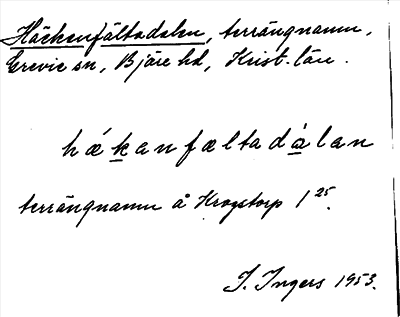 Häckenfältadalen, terrängnamn,
Grevie sn, Bjäre hd, Krist. län.
hækanfæltadàlan
terrängnamn å Krogstorp 1²⁵.
I. Ingers 1953.